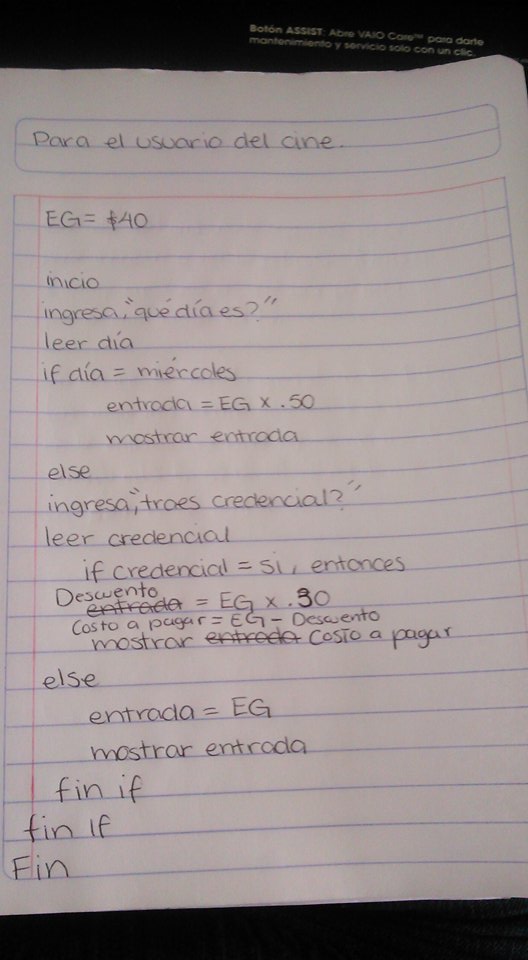 Botón ASSIST: Abre VAIO Care™ para darte
mantenimiento y servicio solo con un clic.
Para el usuario del cine.
EG= $40
inicio
ingresa, "qué día es?"
leer día
if día = miércoles
entrada = EG x .50
mostrar entrada
else
ingresa, "traes credencial?"
leer credencial
if credencial = si, entonces
Descuento
entrada = EG x .30
Costo a pagar = EG - Descuento
mostrar entrada costo a pagar
else
entrada = EG
mostrar entrada
fin if
fin if
Fin